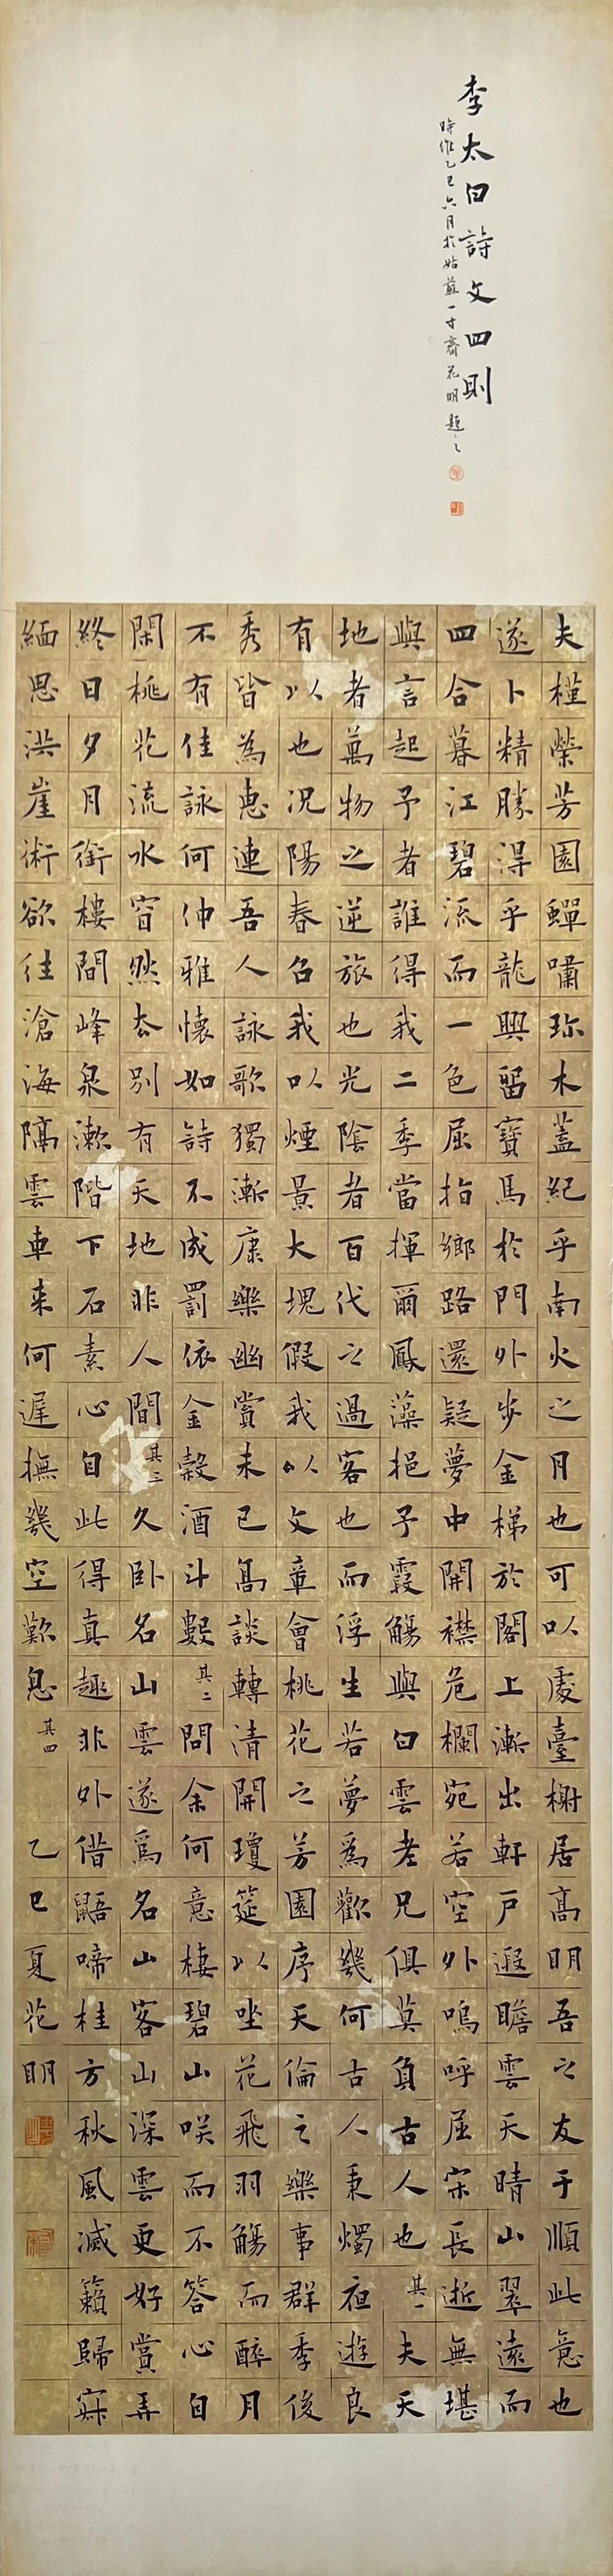 李太白詩文四則
時維乙巳六月於姑蘇一寸齋花明題之
夫槿榮芳園蟬嘯珍木蓋紀乎南火之月也可以處臺榭居高明吾之友于順此意也
遂卜精勝得乎龍興留寶馬於門外步金梯於閣上漸出軒戶遐瞻雲天晴山翠遠而
四合暮江碧流而一色屈指鄉路還疑夢中開襟危欄宛若空外嗚呼屈宋長逝無堪
與言起予者誰得我二季當揮爾鳳藻挹予霞觴與白雲老兄俱莫負古人也其一夫天
地者萬物之逆旅也光陰者百代之過客也而浮生若夢為歡幾何古人秉燭夜遊良
有以也況陽春召我以煙景大塊假我以文章會桃花之芳園序天倫之樂事群季俊
秀皆為惠連吾人詠歌獨慚康樂幽賞未已高談轉清開瓊筵以坐花飛羽觴而醉月
不有佳詠何伸雅懷如詩不成罰依金穀酒斗數其二問余何意棲碧山笑而不答心自
閑桃花流水窅然去別有天地非人間其三久臥名山雲遂為名山客山深雲更好賞弄
終日夕月銜樓間峰泉漱階下石素心自此得真趣非外借鼯啼桂方秋風滅籟歸寂
緬思洪崖術欲往滄海隔雲車來何遲撫幾空歎息其四 乙巳夏花明